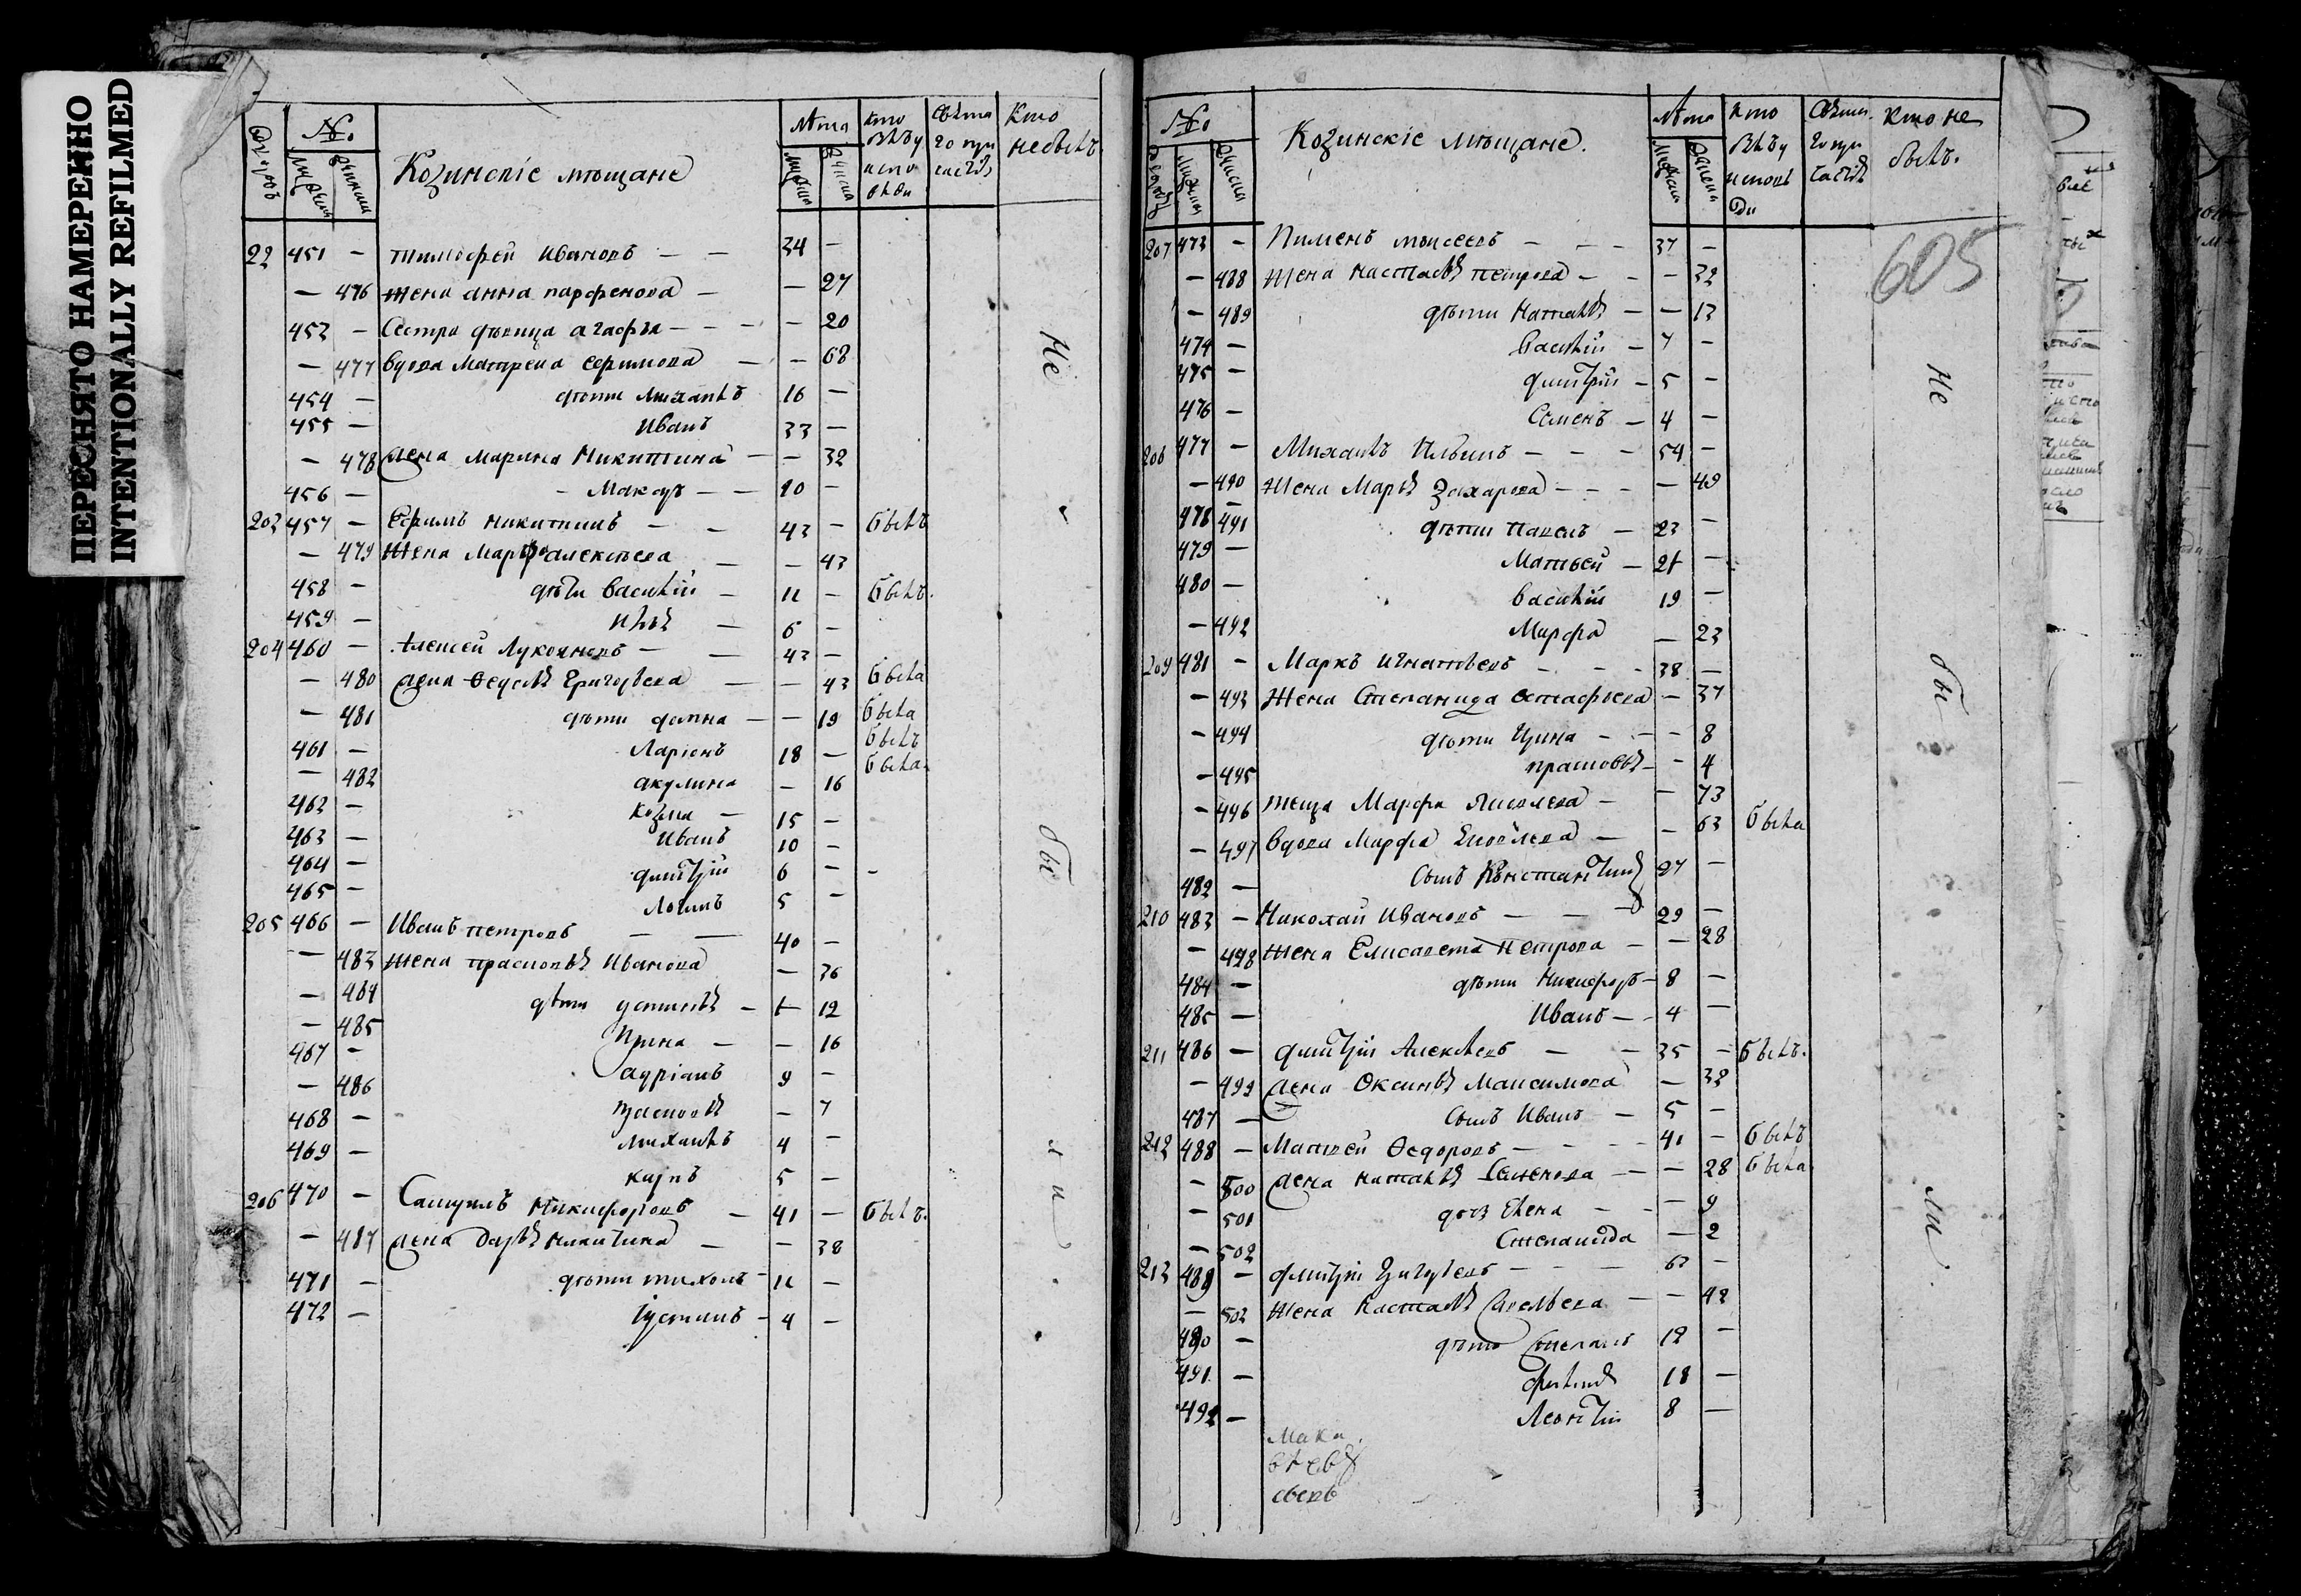 ПЕРЕСНЯТО НАМЕРЕННО
INTENTIONALLY REFILMED
№. Козинскіе мѣщане Лѣта кто былъ у исповѣди Святаго причастія Кто не былъ.
22 451 — тимофей Ивановъ — — 34 —
— 476 жена анна парфенова — — 27
453 — Сестра девица агафья — — — — 20
— 477 вдова Матрена ефимова — — 68
454 — дѣти михаилъ 16 —
455 — Иванъ 33 —
— 478 жена Марина Никитина — — 32
456 — — Макаръ — — 10 —
203 457 — Ефимъ никитинъ — — 43 — былъ
— 479 Жена Марфа алексѣева — — 43
458 — дѣти Василій — 11 — былъ.
459 — Илья — 6 —
204 460 — Алексей Лукояновъ — — 43 —
— 480 жена Ѳедосья Григорьева — — 43 была
— 481 дѣти домна — — 19 была
461 — Ларіонъ 18 — былъ
— 482 акулина — 16 была
462 — козма — 15 —
463 — Иванъ 10 —
464 — дмитрій 6 — -
465 — Логинъ 5 —
205 466 — Иванъ петровъ — — 40 —
— 483 жена прасковья Иванова — 36
— 484 дѣти устинья — — 12
— 485 Ирина — — 16
467 — адріанъ 9 —
— 486 — 7
468 — михаилъ 4 —
469 — карпъ 5 —
206 470 — Самуилъ Никифоровъ — 41 — былъ.
— 487 жена дарья никитина — — 38
471 — дѣти тихонъ — 11 —
472 — Іустинъ — 4 —
Не бы ли
№. Козинскіе мѣщане. Лѣта кто былъ у исповѣди Святаго причастія кто не былъ.
605
207 473 — Пименъ моисеевъ — — — 37 —
— 488 жена настасья петрова — — — 32
— 489 дѣти наталья — — 13
474 — василій — 7 —
475 — дмитрій — 5 —
476 — Семенъ — 4 —
208 477 — Михаилъ Ильинъ — — — 54 —
— 490 Жена Марья Захарова — — — — 49
478 491 дѣти павелъ — 23 —
479 — Матвей — 21 —
480 — василій 19 —
— 492 Марфа — 23
209 481 — Маркъ игнатьевъ — — — 38 —
— 493 Жена Степанида Астафьева — 37
— 494 дѣти Ирина — — — 8
— 495 прасковья — — 4
— 496 теща Марфа Яковлева — — 73
— 497 вдова Марфа — — 63 была
482 — сынъ Константинъ 27 —
210 483 — Николай Ивановъ — — — 29 —
— 498 жена Елисавета петрова — — 28
484 — дѣти Никифоръ — 8 —
485 — Иванъ — — 4 —
211 486 — дмитрій Алексѣевъ — — 35 — былъ.
— 499 жена Оксинья Максимова — 32
487 — сынъ Иванъ — 5 —
212 488 — Матвей Ѳедоровъ — — — — 41 — былъ
— 500 жена наталья Семенова — — 28 была
— 501 Елена — — — 9
— 502 Степанида — 2
213 489 — дмитрій Григорьевъ — — — 63 —
— 502 жена настасья Савельева — — 42
490 — дѣти Степанъ 12 —
491 — 18 —
492 — Леонтій 8 —
Не бы ли.